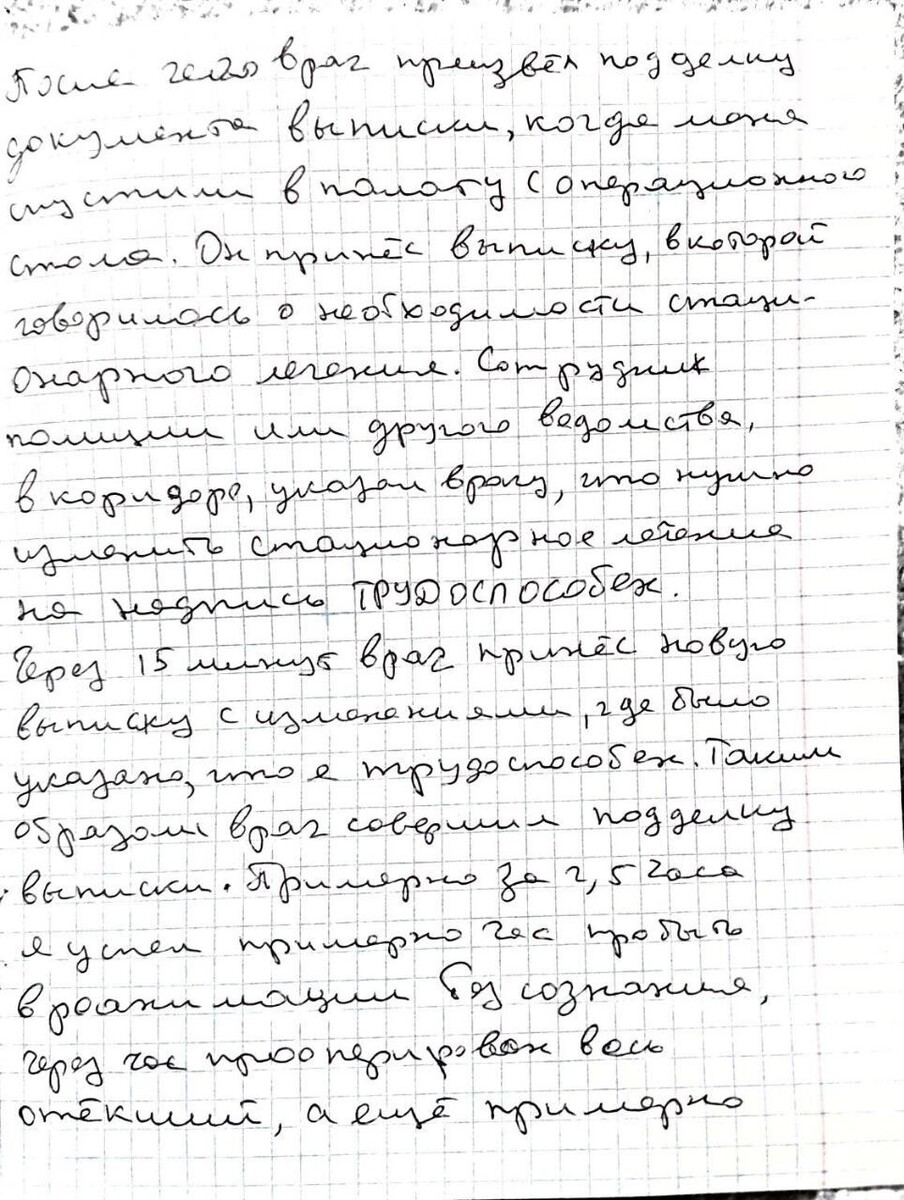 После чего врач произвёл подделку
документа выписки, когда меня
спустили в палату с операционного
стола. Он принёс выписку, в которой
говорилось о необходимости стаци-
онарного лечения. Сотрудник
полиции или другого ведомства,
в коридоре, указал врачу, что нужно
изменить стационарное лечение
на надпись ТРУДОСПОСОБЕН.
Через 15 минут врач принёс новую
выписку с изменениями, где было
указано, что я трудоспособен. Таким
образом врач совершил подделку
выписки. Примерно за 2,5 часа
я успел примерно час пробыть
в реанимации без сознания,
через час прооперирован весь
отёкший, а ещё примерно